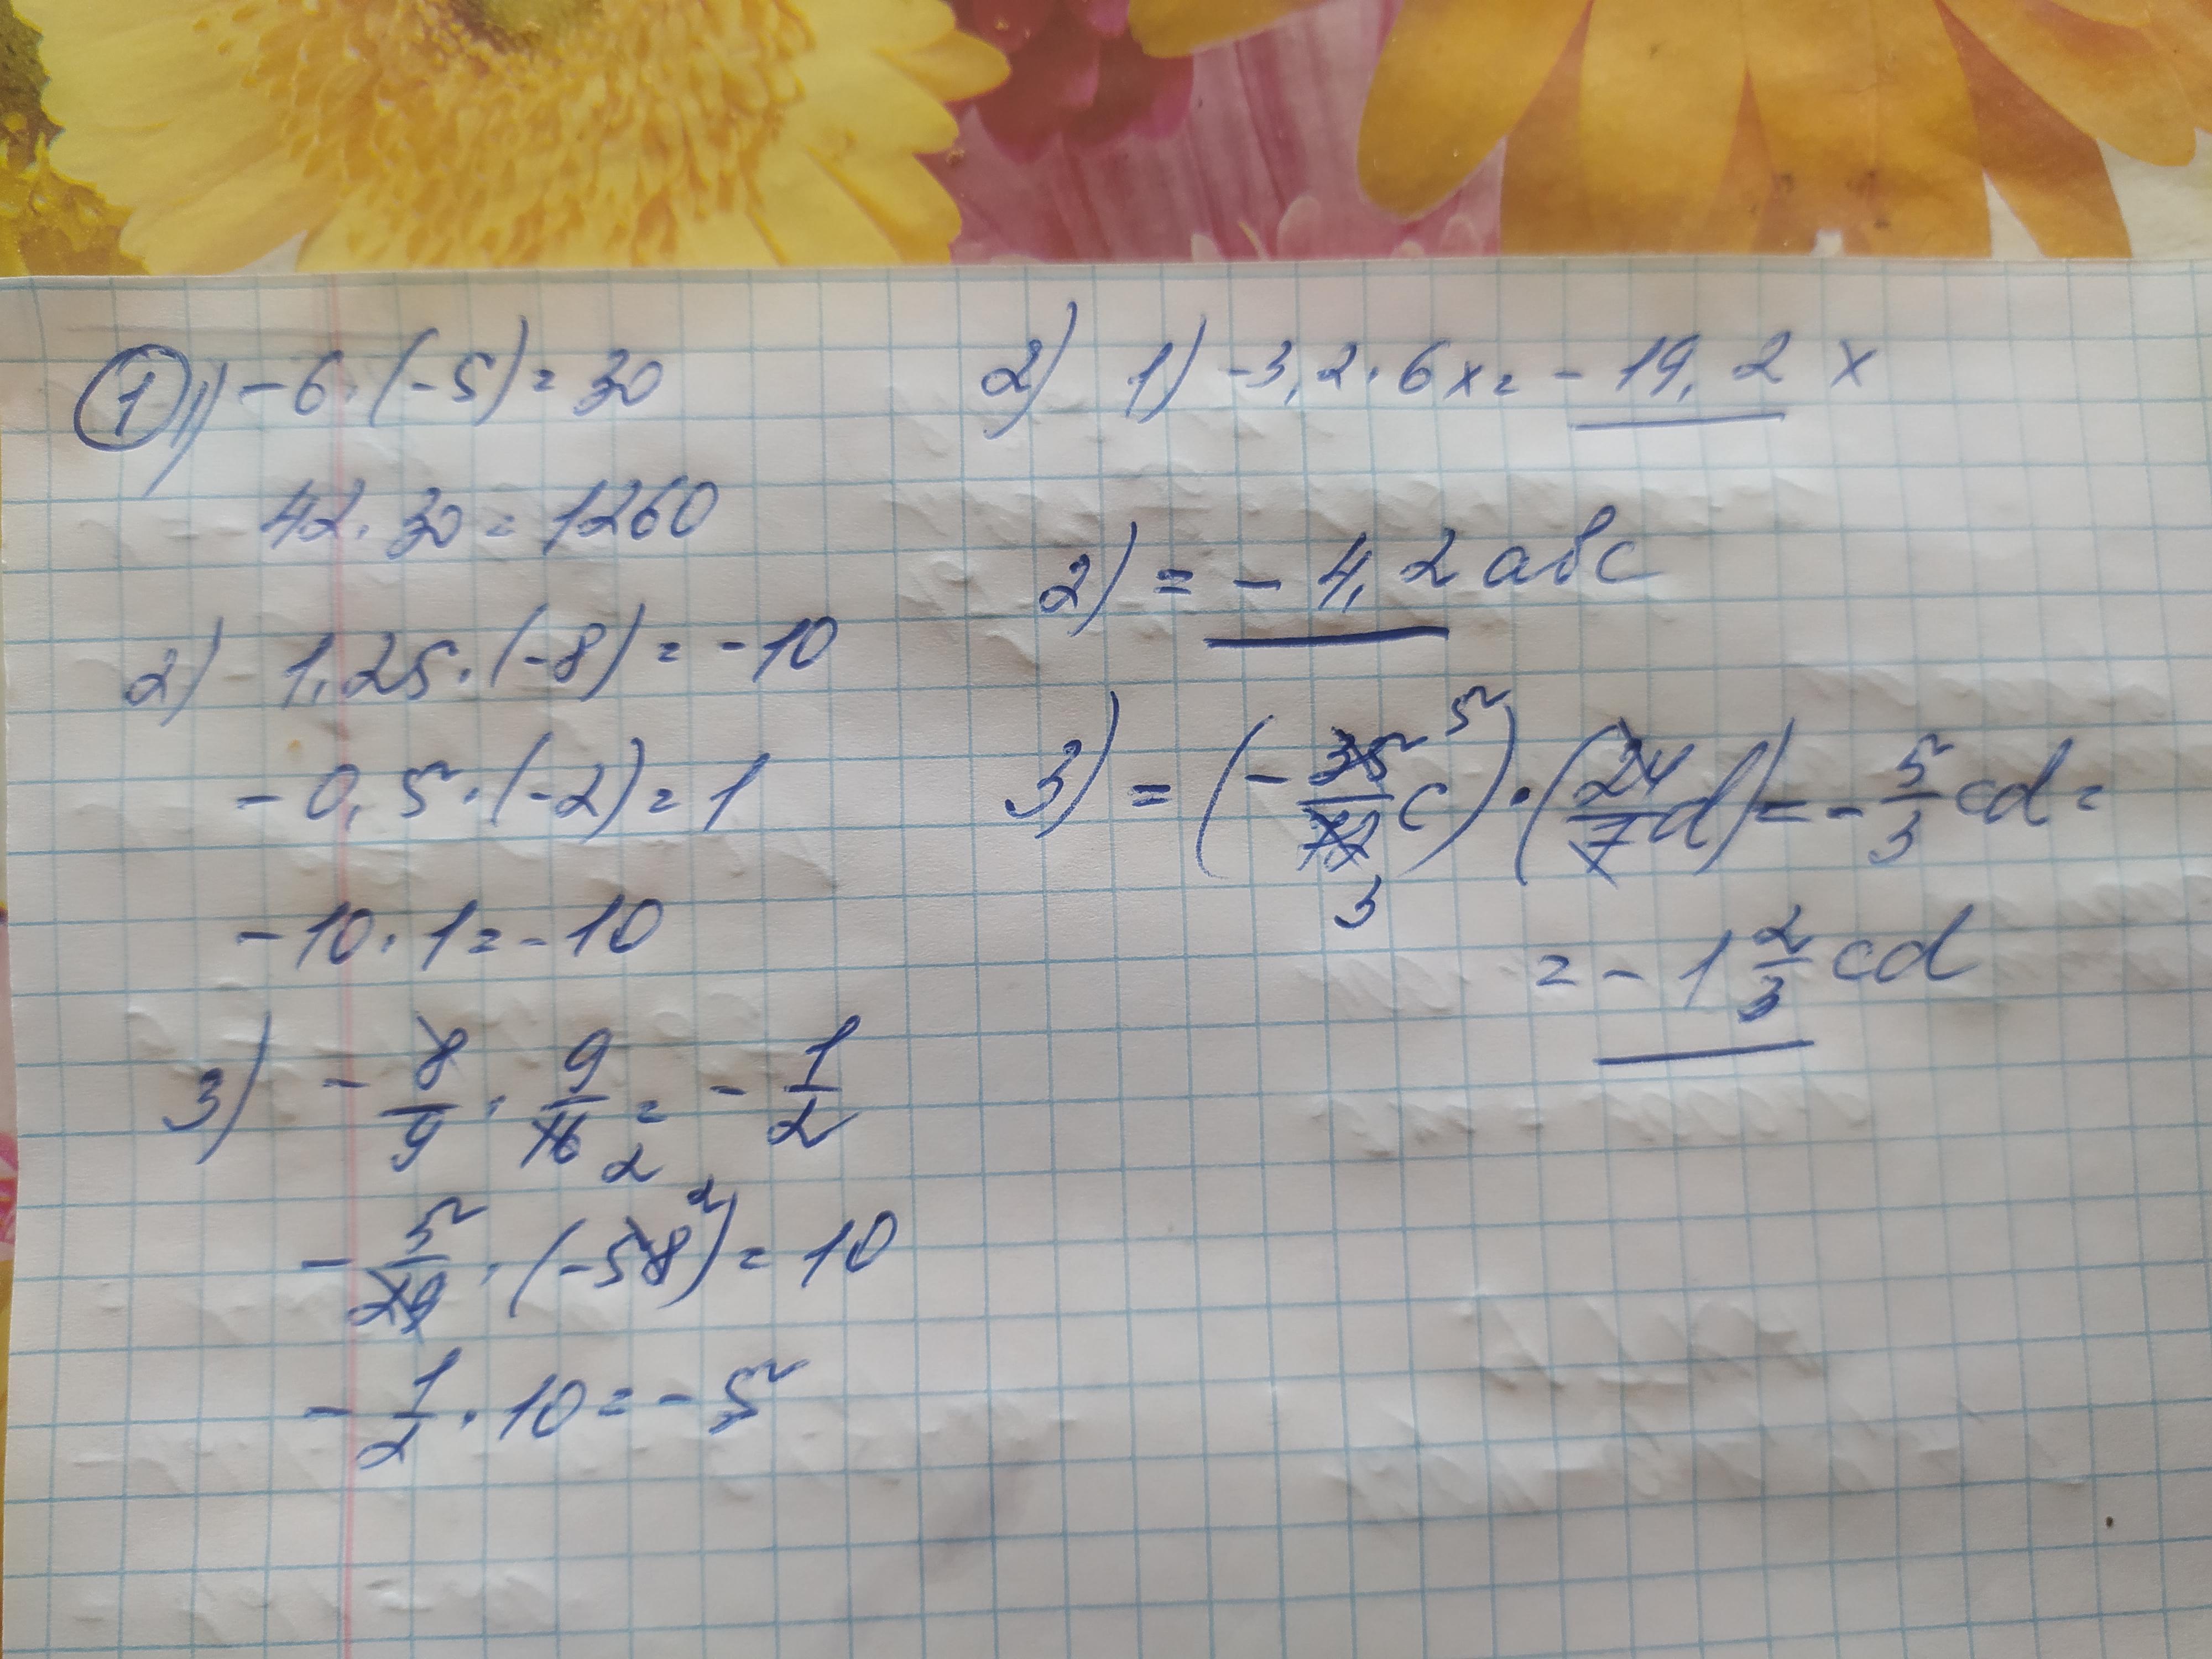 1 1) -6·(-5)=30
42·30=1260
2) 1,25·(-8)=-10
-0,5·(-2)=1
-10·1=-10
3) -8/9·9/16 2=-1/2
-5/29·(-58)2=10
-1/2·10=-5
2) 1) -3,2·6x=-19,2x
2) =-4,2abc
3) =(-35/72c)5 3·(24/7d)=-5/3cd=
=-1 2/3cd